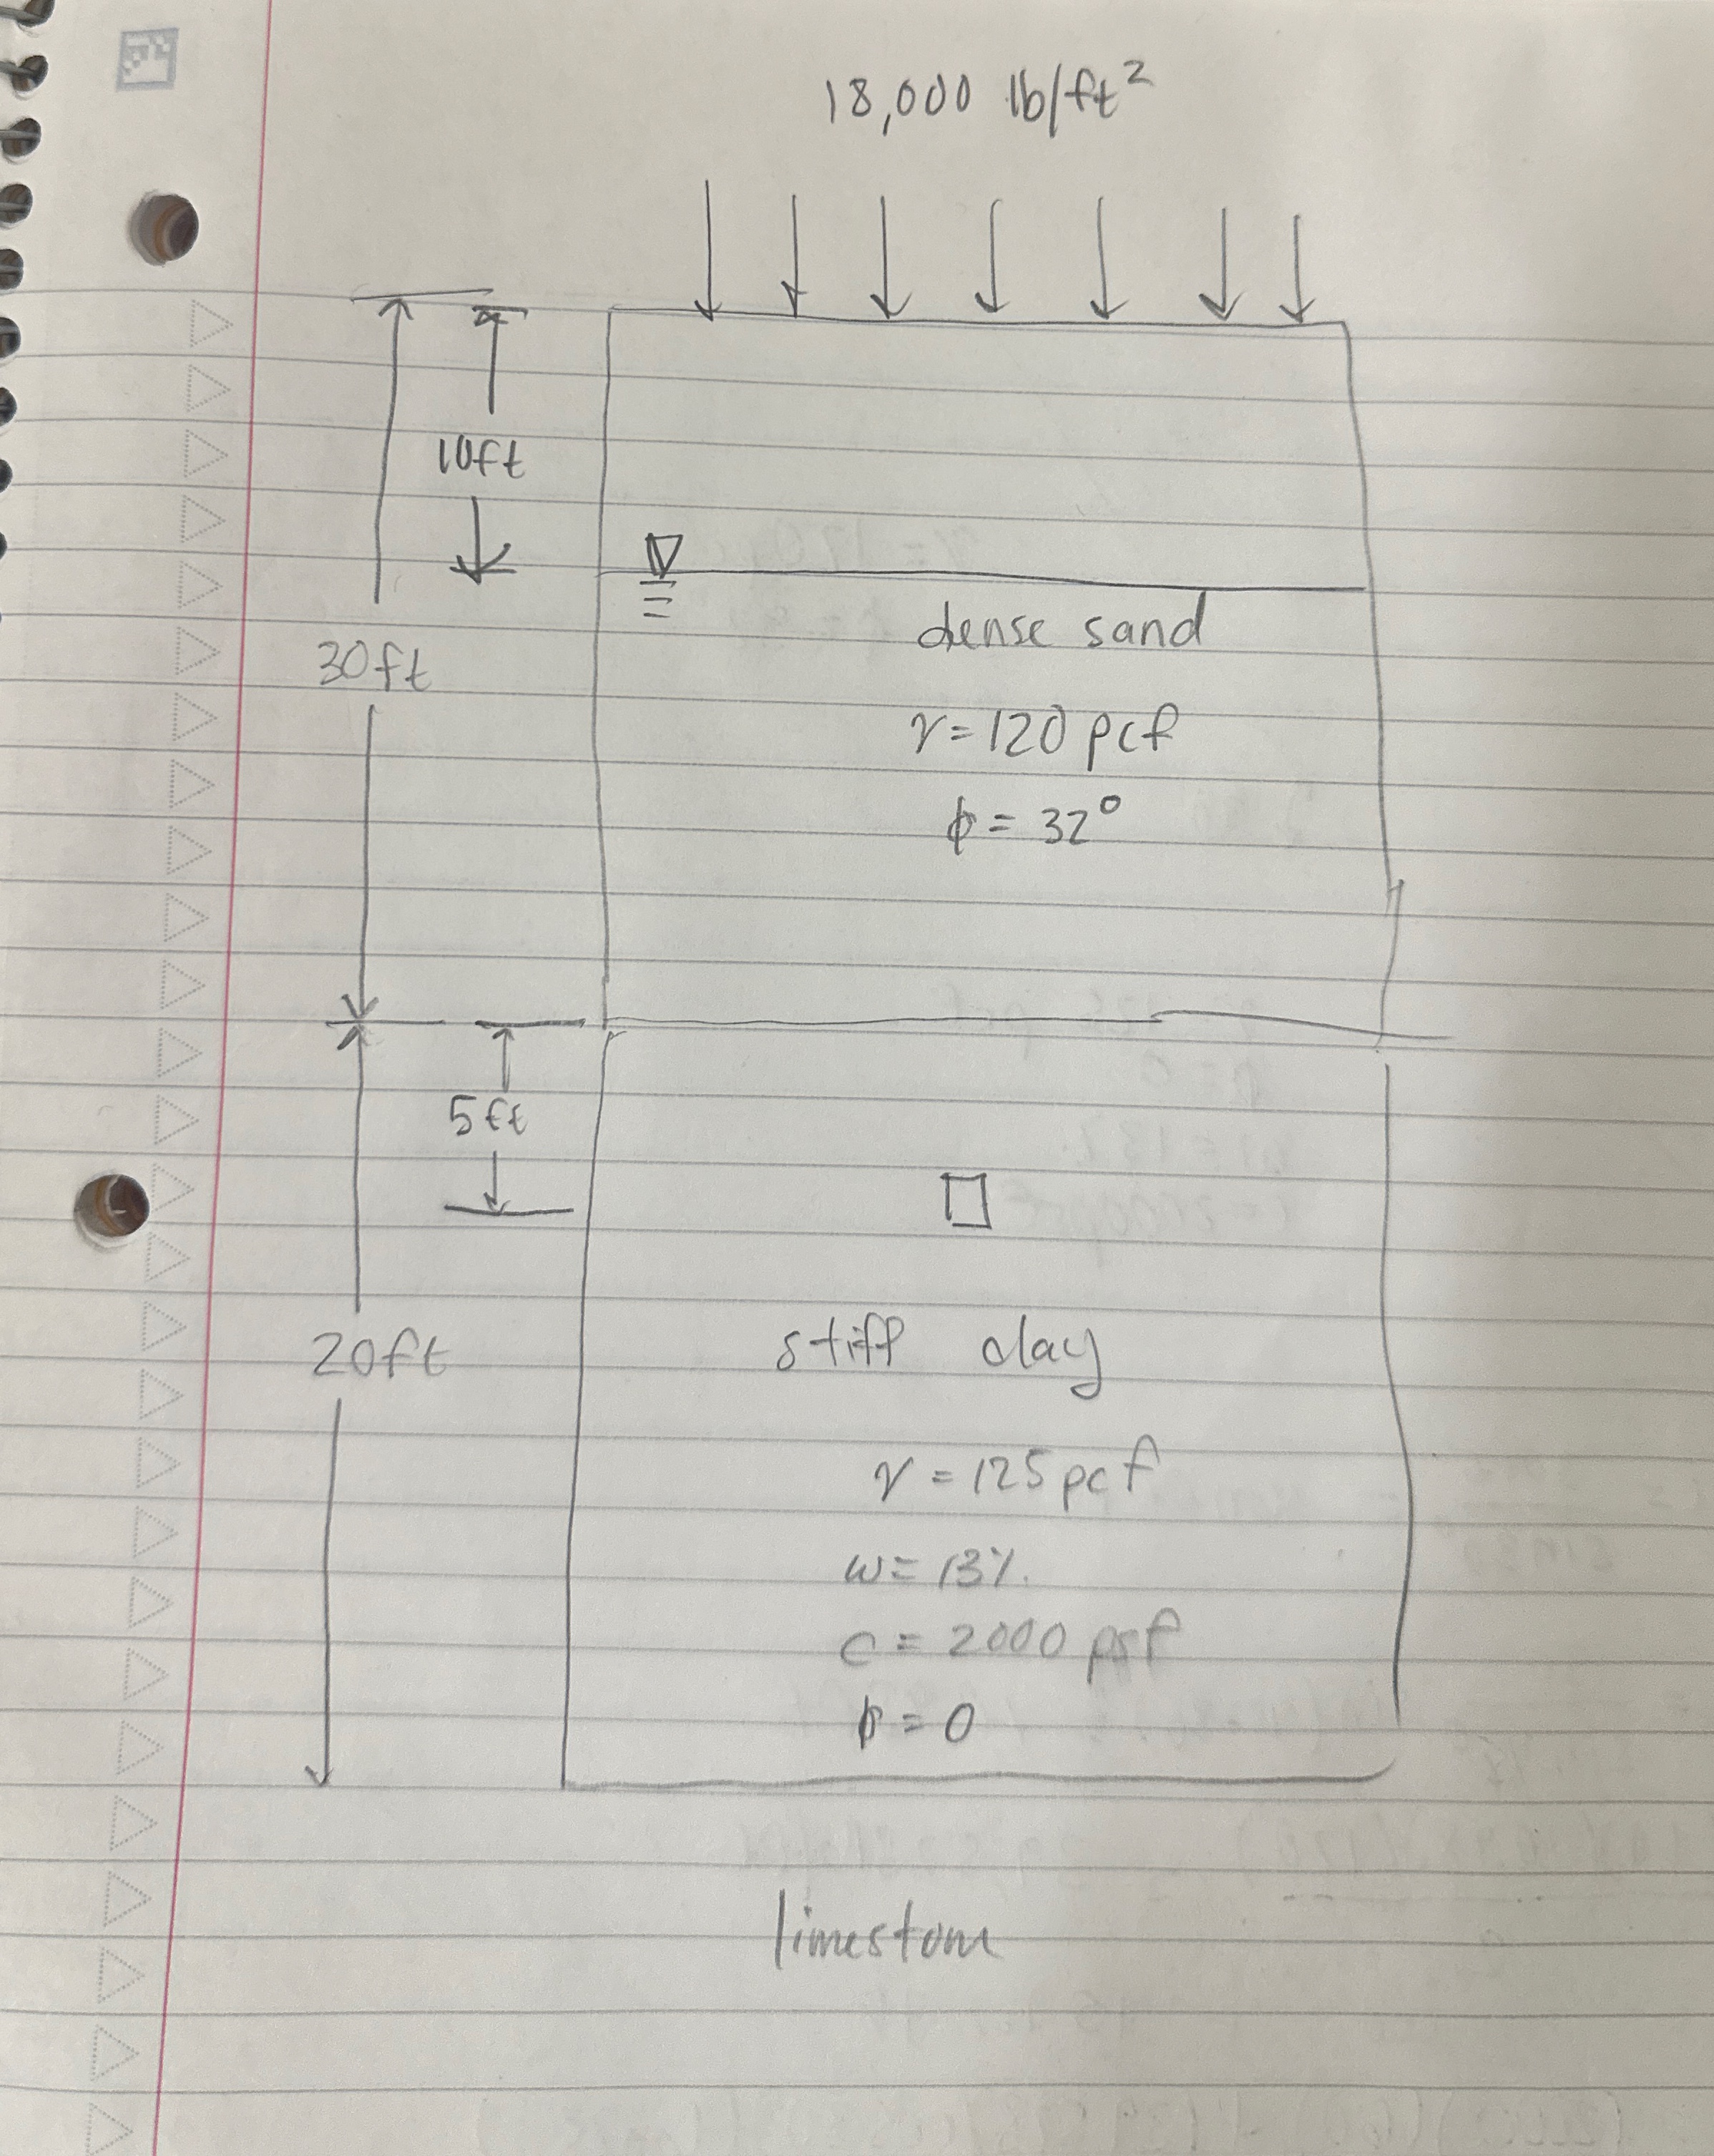 18,000 lb/ft²
10ft
dense sand
30ft
γ = 120 pcf
ϕ = 32°
5ft
stiff clay
20ft
γ = 125 pcf
w = 13%
c = 2000 psf
ϕ = 0
limestone